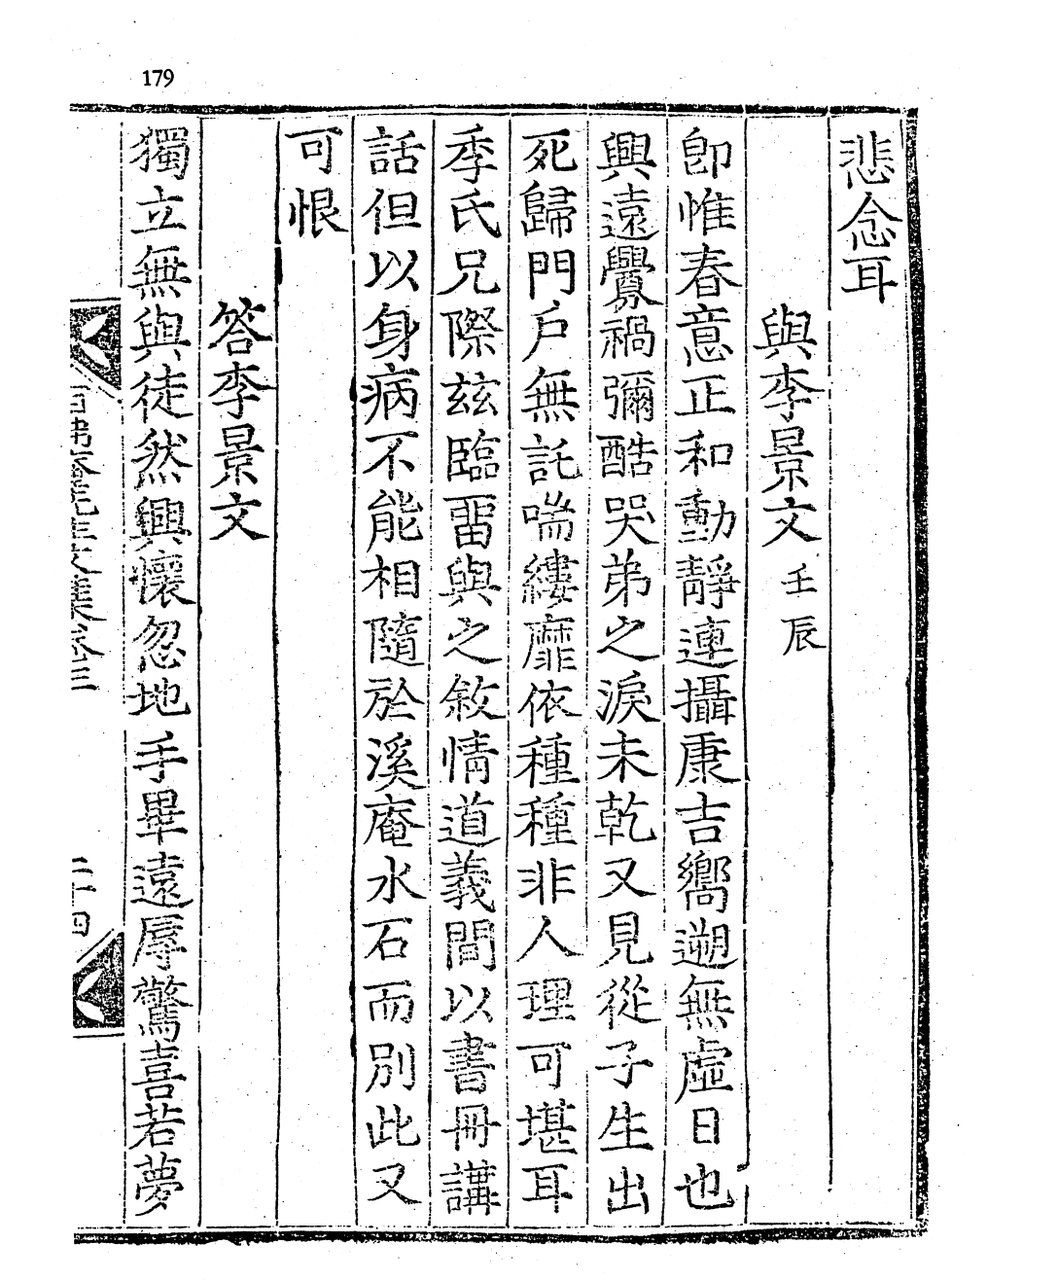 179
悲念耳
與李景文 壬辰
卽惟春意正和動靜連攝康吉嚮遡無虛日也
興遠釁禍彌酷哭弟之淚未乾又見從子生出
死歸門戶無託喘縷靡依種種非人理可堪耳
季氏兄際玆臨畱與之敘情道義間以書冊講
話但以身病不能相隨於溪庵水石而別此又
可恨
答李景文
獨立無與徒然興懷忽地手畢遠辱驚喜若夢
先生文集卷三
二十四